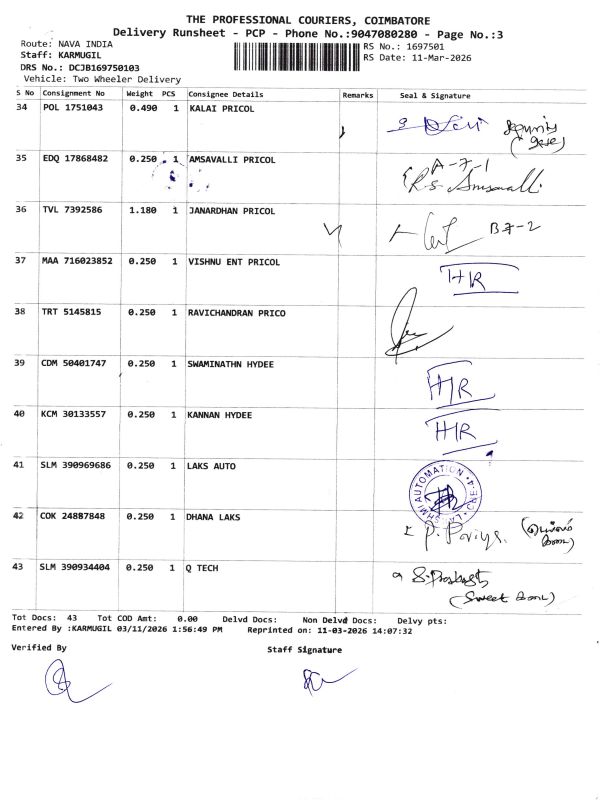 THE PROFESSIONAL COURIERS, COIMBATORE
Delivery Runsheet - PCP - Phone No.:9047080280 - Page No.:3
Route: NAVA INDIA
RS No.: 1697501
Staff: KARMUGIL
RS Date: 11-Mar-2026
DRS No.: DCJB169750103
Vehicle: Two Wheeler Delivery
S No Consignment No Weight PCS Consignee Details Remarks Seal & Signature
34 POL 1751043 0.490 1 KALAI PRICOL
35 EDQ 17868482 0.250 1 AMSAVALLI PRICOL A-7-1
36 TVL 7392586 1.180 1 JANARDHAN PRICOL B7-2
37 MAA 716023852 0.250 1 VISHNU ENT PRICOL HR
38 TRT 5145815 0.250 1 RAVICHANDRAN PRICO
39 CDM 50401747 0.250 1 SWAMINATHN HYDEE HR
40 KCM 30133557 0.250 1 KANNAN HYDEE HR
41 SLM 390969686 0.250 1 LAKS AUTO
42 COK 24887848 0.250 1 DHANA LAKS
43 SLM 390934404 0.250 1 Q TECH
Tot Docs: 43 Tot COD Amt: 0.00 Delvd Docs: Non Delvd Docs: Delvy pts:
Entered By :KARMUGIL 03/11/2026 1:56:49 PM Reprinted on: 11-03-2026 14:07:32
Verified By Staff Signature